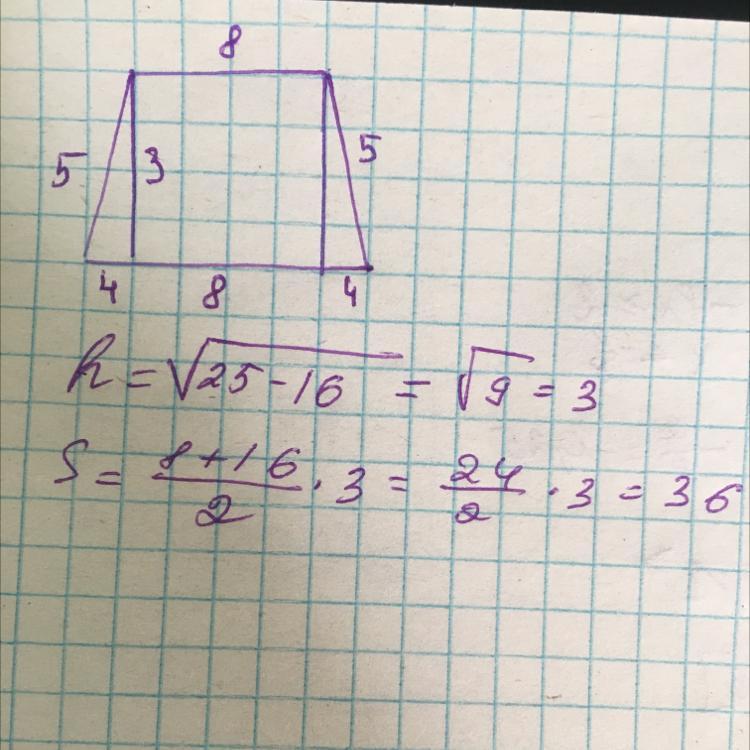 8
5 3 5
4 8 4
h = √25-16 = √9 = 3
S = 8+16/2 · 3 = 24/2 · 3 = 36